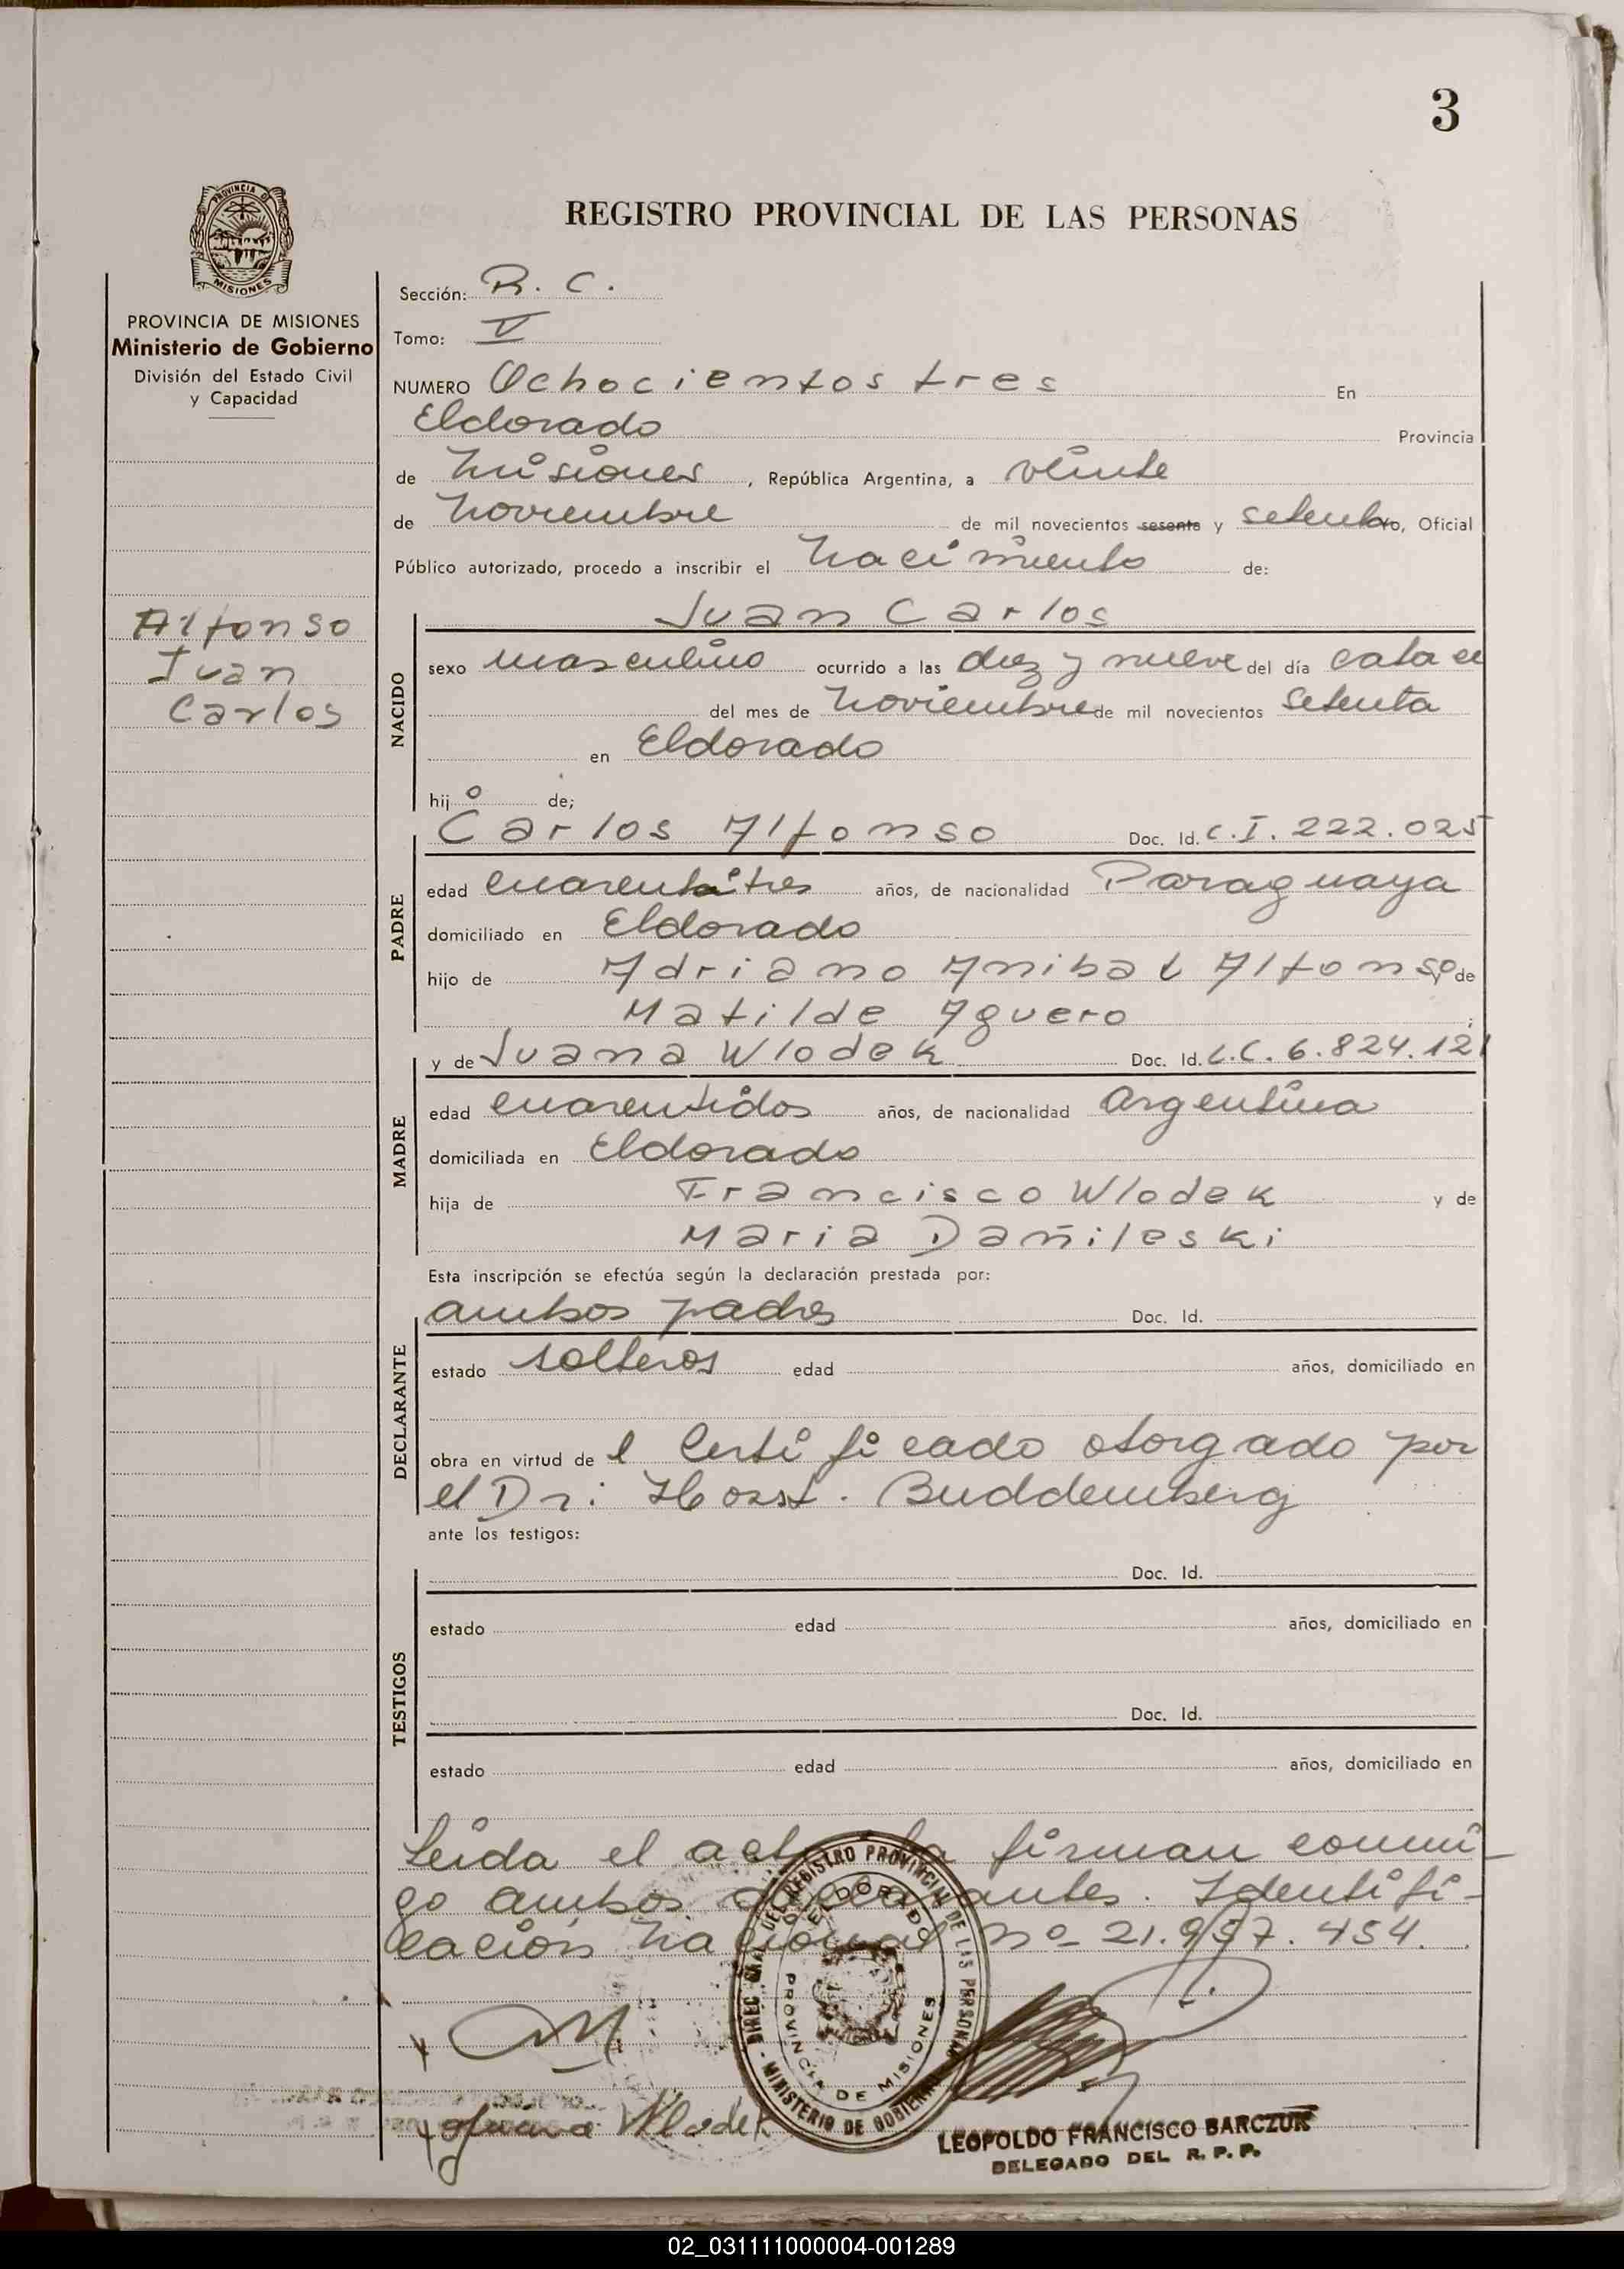 3
REGISTRO PROVINCIAL DE LAS PERSONAS
PROVINCIA DE MISIONES
Ministerio de Gobierno
División del Estado Civil
y Capacidad
Alfonso
Juan
Carlos
Sección: R. C.
Tomo: V
NUMERO Ochocientos tres En
Eldorado Provincia
de Misiones, República Argentina, a veinte
de Noviembre de mil novecientos sesenta y setenta, Oficial
Público autorizado, procedo a inscribir el Nacimiento de:
Juan Carlos
NACIDO
sexo masculino ocurrido a las diez y nueve del día catace
del mes de Noviembre de mil novecientos Setenta
en Eldorado
hijo de;
Carlos Alfonso Doc. Id. C.I. 222.025
PADRE
edad cuarentaitres años, de nacionalidad Paraguaya
domiciliado en Eldorado
hijo de Adriano Anibal Alfonso y de
Matilde Aguero ;
y de Juana Wlodek Doc. Id. L.C. 6.824.121
MADRE
edad cuarentidos años, de nacionalidad Argentina
domiciliada en Eldorado
hija de Francisco Wlodek y de
Maria Dañileski
Esta inscripción se efectúa según la declaración prestada por:
ambos padres Doc. Id.
DECLARANTE
estado solteros edad años, domiciliado en
obra en virtud del Certificado otorgado por
el Dr: Horst. Buddemberg
ante los testigos:
Doc. Id.
TESTIGOS
estado edad años, domiciliado en
Doc. Id.
estado edad años, domiciliado en
Leida el acta la firman conmi-
go ambos declarantes. Identifi-
cación Nacional Nº 21.957.454.
DIREC. GRAL. DEL REGISTRO PROVINCIAL DE LAS PERSONAS - MINISTERIO DE GOBIERNO -
ELDORADO
PROVINCIA DE MISIONES
Juana Wlodek
LEOPOLDO FRANCISCO BARCZUK
DELEGADO DEL R. P. P.
02_031111000004-001289